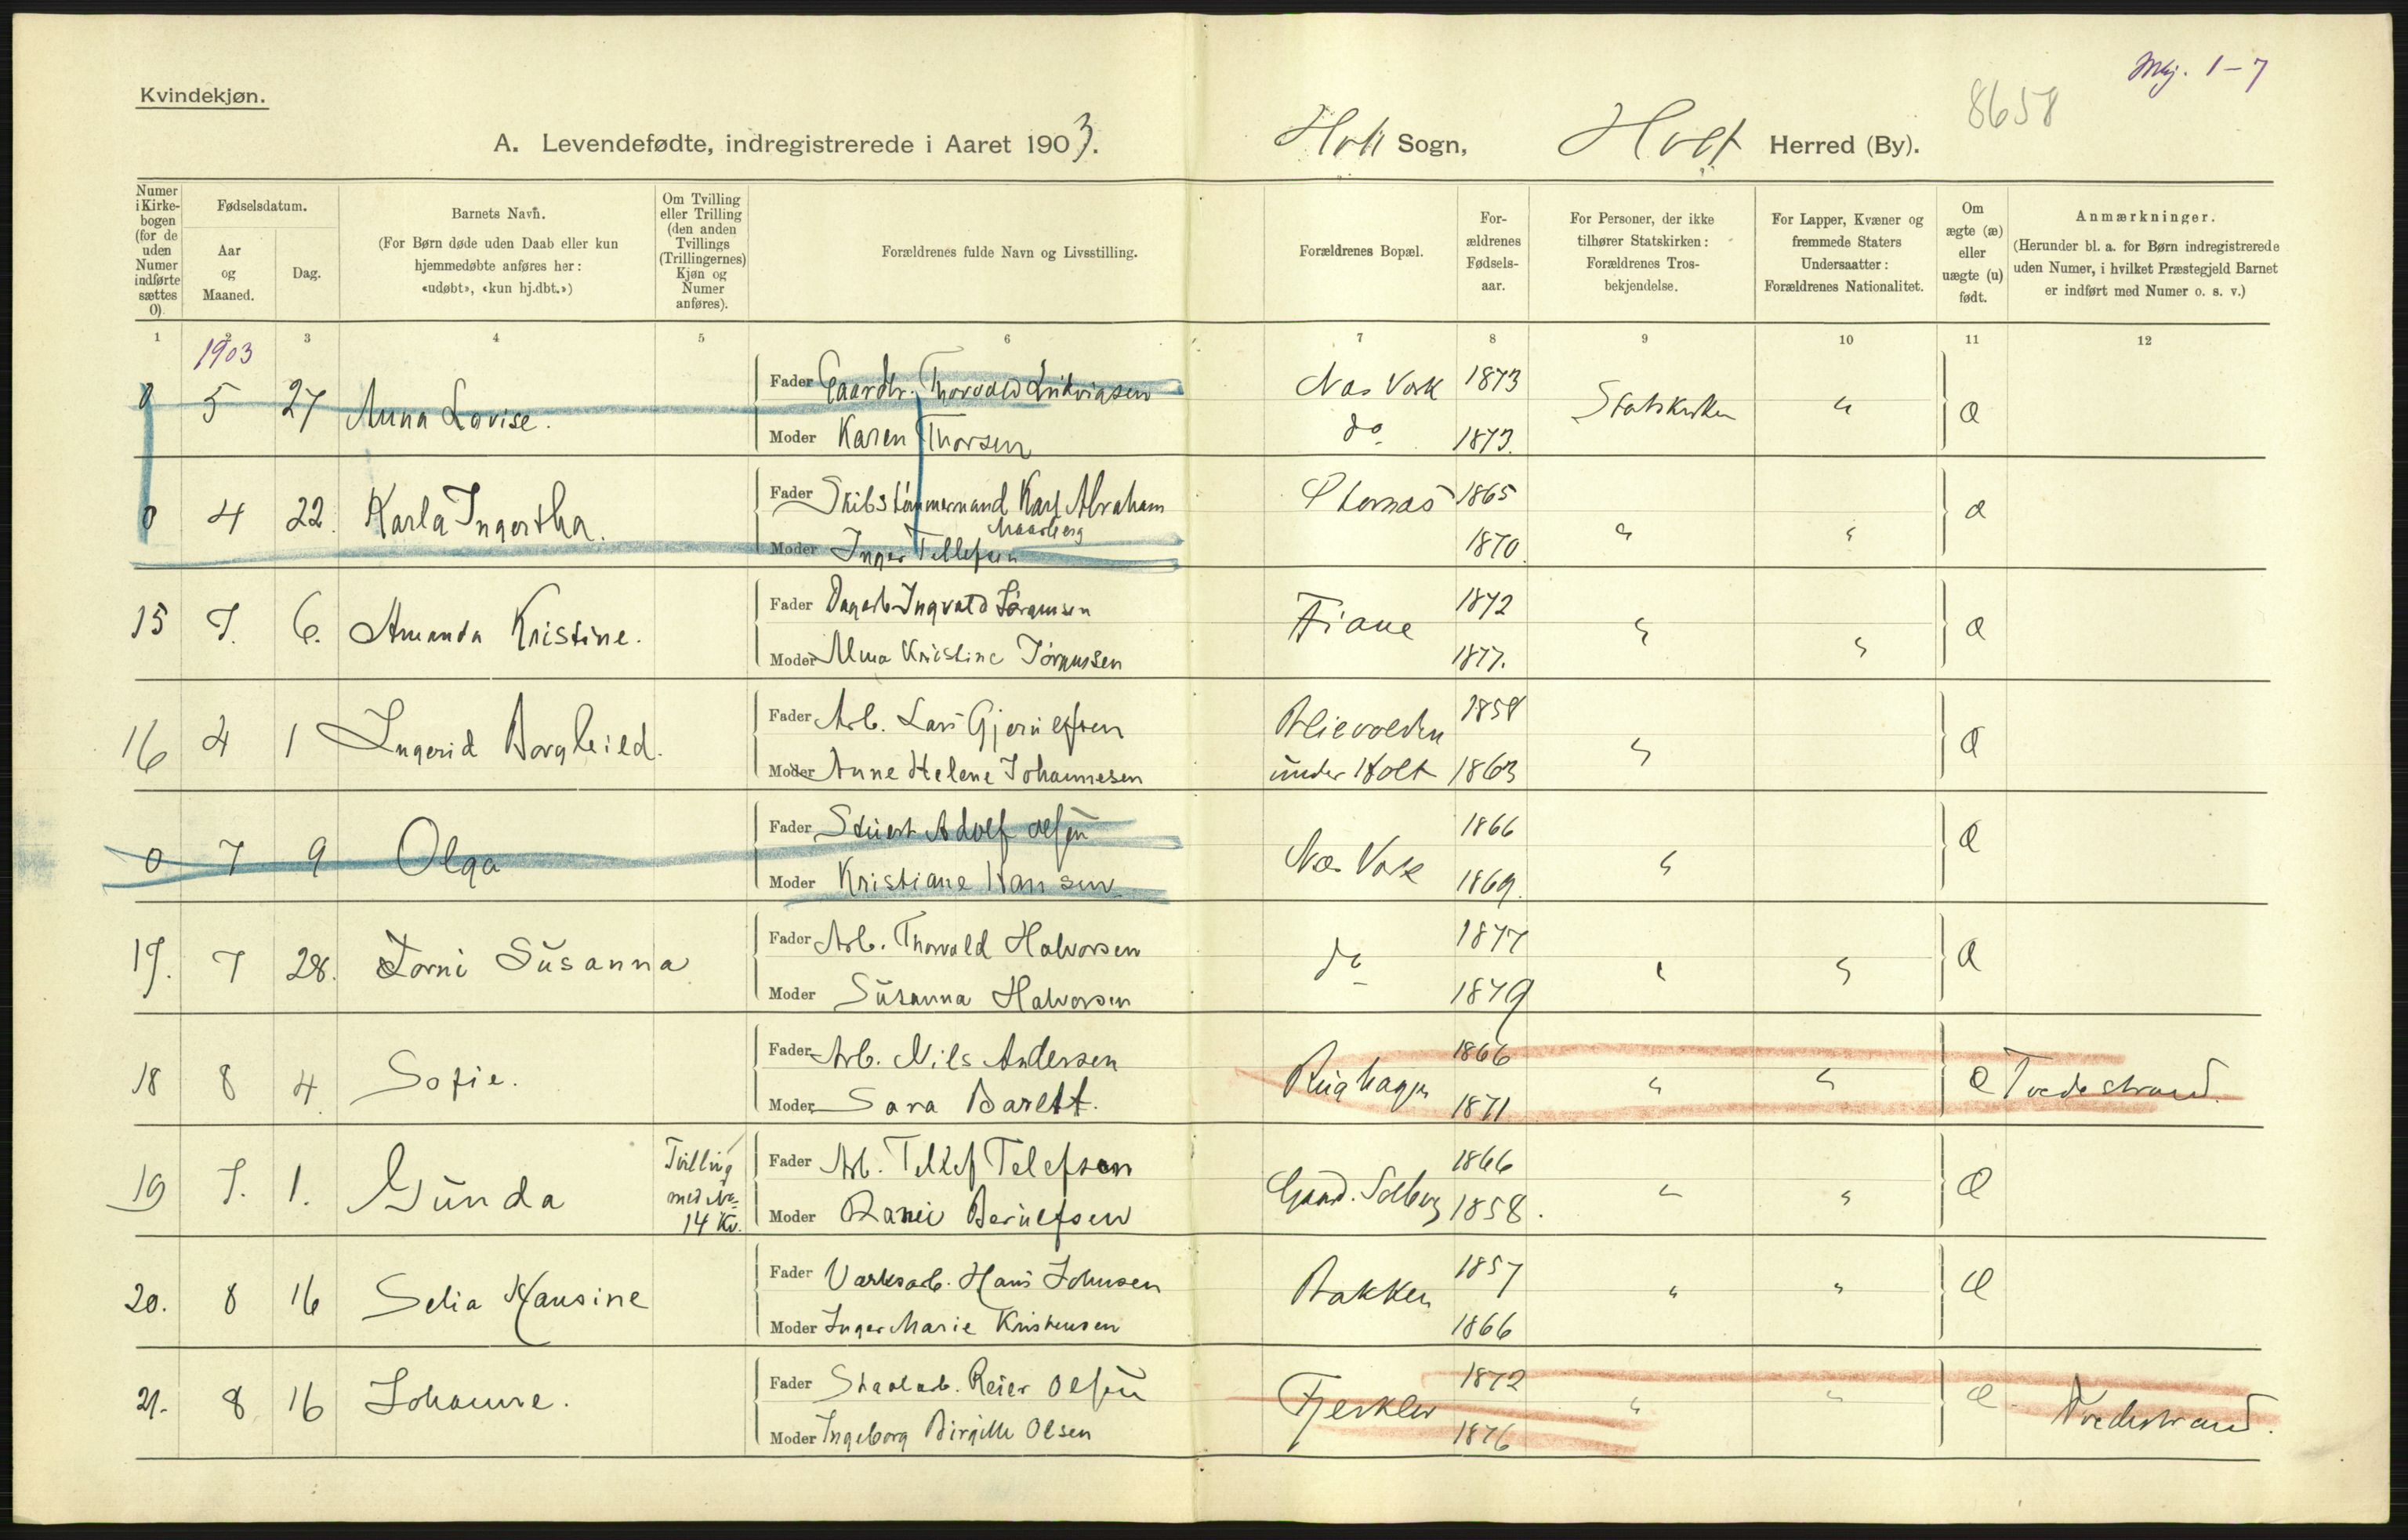 Mkj. 1-7
8658
Kvindekjøn.
A. Levendefødte, indregistrerede i Aaret 1903. Holt Sogn, Holt Herred (By).
Numer i Kirkebogen (for de uden Numer indførte sættes 0).
Fødselsdatum.
Aar og Maaned.
Dag.
Barnets Navn.
(For Børn døde uden Daab eller kun hjemmedøbte anføres her: «udøbt», «kun hj.dbt.»)
Om Tvilling eller Trilling (den anden Tvillings (Trillingernes) Kjøn og Numer anføres).
Forældrenes fulde Navn og Livsstilling.
Forældrenes Bopæl.
Forældrenes Fødselsaar.
For Personer, der ikke tilhører Statskirken: Forældrenes Trosbekjendelse.
For Lapper, Kvæner og fremmede Staters Undersaatter: Forældrenes Nationalitet.
Om ægte (æ) eller uægte (u) født.
Anmærkninger.
(Herunder bl. a. for Børn indregistrerede uden Numer, i hvilket Præstegjeld Barnet er indført med Numer o. s. v.)
1 2 3 4 5 6 7 8 9 10 11 12
1903
0 5 27 Anna Lovise. Fader Gaardbr. Thorvald Ludvigsen Næs Værk 1873 Statskirken " æ
Moder Karen Thorsen do 1873.
0 4 22. Karla Ingertha. Fader Skibstømmermand Karl Abraham 1865 æ
Moder Inger Tellefsen 1870. " "
15 7. 6. Amanda Kristine. Fader Dagarb. Ingvald Jørgensen Fiane 1872 " " æ
Moder Alma Kristine Jørgensen 1877.
16 4 1 Ingerid Borghild. Fader Arb. Lars Gjerulfsen 1858 " æ
Moder Anne Helene Johannesen under Holt 1863
0 7 9 Olga Fader Adolf Olsen Næs Værk 1866 " æ
Moder Kristiane Hansen 1869.
17. 7 28. Jorni Susanna Fader Arb. Thorvald Halvorsen do 1877 " " æ
Moder Susanna Halvorsen 1879
18 8 4 Sofie. Fader Arb. Nils Andersen Rughagen 1866 " " æ Tvedestrand.
Moder Sara Barett. 1871
19 7. 1. Gunda Tvilling med No 14 Kv. Fader Arb. Tellef Telefsen Solberg 1866 " " æ
Moder Berulfsen 1858.
20. 8 16 Selia Hansine Fader Værksarb. Hans Johnsen Bakken 1857 " " æ
Moder Inger Marie Kristensen 1866
21. 8 16 Johanne. Fader Staalarb. Reier Olsen 1872 " " æ Tvedestrand.
Moder Ingeborg Birgitte Olsen 1876